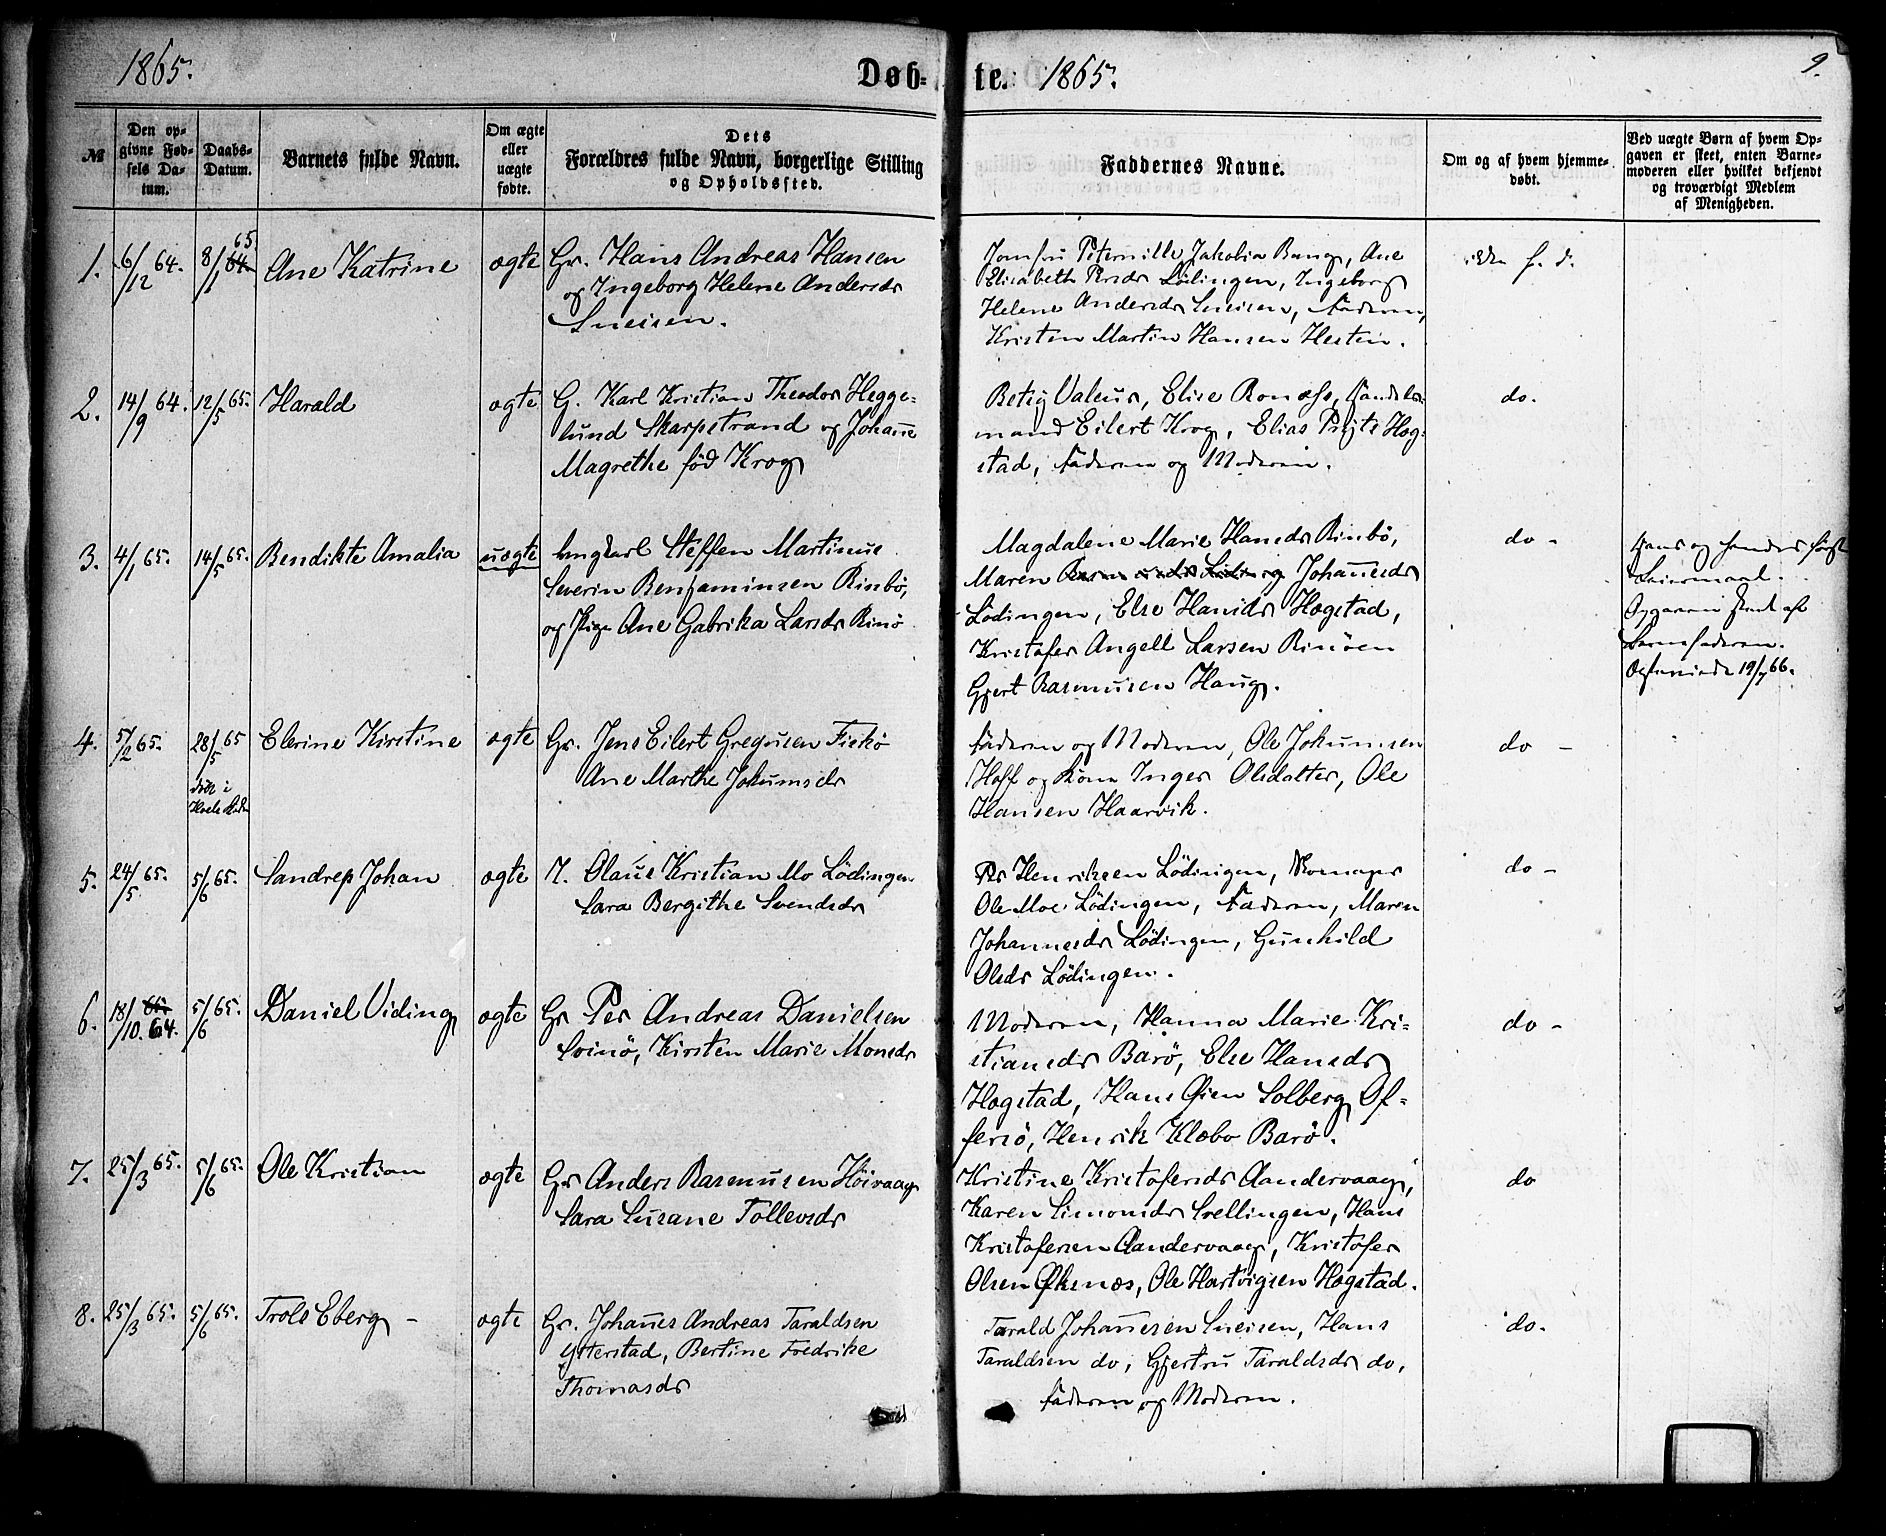 1865.
Døb-
te.
1865.
9.
№
Den op-
givne Fød-
sels Da-
tum.
Daabs-
Datum.
Barnets fulde Navn.
Om ægte
eller
uægte
fødte.
Dets
Forældres fulde Navn, borgerlige Stilling
og Opholdssted.
Faddernes Navne.
Om og af hvem hjemme-
døbt.
Ved uægte Børn af hvem Op-
gaven er skeet, enten Barne-
moderen eller hvilket bekjendt
og troværdigt Medlem
af Menigheden.
1.
6/12 64.
8/1 64. 65.
Ane Katrine
ægte
Gr. Hans Andreas Hansen
og Ingeborg Helene Andersdr
Sneisen.
Jomfru Peternille Jakobia Bang, Ane
Elisabeth Lödingen, Ingeborg
Helene Andersdr Sneisen, Faderen,
Kristen Martin Hansen Hestin.
ikke h. d.
2.
14/9 64.
12/5 65.
Harald
ægte
G. Karl Kristian Theodor Hegge-
lund Skarpstrand og Johanne
Magrethe föd Krog
Betsy Valeur, Elise Handels-
mand Eilert Krog, Elias Hæg-
stad, Faderen og Moderen.
do.
3.
4/1 65.
14/5 65.
Bendikte Amalia
uægte
Ungkarl Steffen Martinus
Severin Benjaminsen Rinbö,
og Pige Ane Gabrika Larsdr Rinö
Magdalene Marie Hansdr Rinbö,
Maren Johannesdr
Lödingen, Else Hansdr Hægstad,
Kristofer Angell Larsen Rinöen
Gjert Rasmussen Haug.
do -
Hans og hendes første
Leiermaal.
Opgaven skeet af
Barnefaderen.
19/7 66.
4.
5/2 65.
28/5 65
döbt i
Elerine Kirstine
ægte
Gr. Jens Eilert Gregusen Fiskö
Ane Marthe Jokumsdr
Faderen og Moderen, Ole Jokumsen
Hoff og Kone Inger Olsdatter, Ole
Hansen Haarvik.
do -
5.
24/5 65.
5/6 65.
Sandrep Johan
ægte
I. Olaus Kristian Mo Lödingen
Sara Bergithe Svendsdr
Per Henriksen Lödingen,
Ole Moe Lödingen, Faderen, Maren
Johannesdr Lödingen, Gunhild
Olsdr Lödingen.
do -
6.
18/10 65 64.
5/6 65.
Daniel Viding
ægte
Gr Per Andreas Danielsen
Svinö, Kirsten Marie Monsdr
Moderen, Hanna Marie Kri-
stiansdr Barö, Else Hansdr
Hægstad, Hans Öien Solberg Of-
fersö, Henrik Klæbo Barö.
do -
7.
25/3 65.
5/6 65.
Ole Kristian
ægte
Gr Anders Rasmusen Höivaag
Sara Susane Tollevsdr
Kristine Kristofersdr Aandervaag,
Karen Simonsdr Svellingen, Hans
Kristofersen Aandervaag, Kristofer
Olsen Öksnæs, Ole Hartvigsen Hægstad.
do
8.
25/3 65.
5/6 65.
Trols Eberg -
ægte
Gr. Johanes Andreas Taraldsen
Ytterstad, Bertine Fredrike
Thomasdr
Tarald Johannesen Sneisen, Hans
Taraldsen do, Gjertru Taraldsdr do,
Faderen og Moderen.
do.